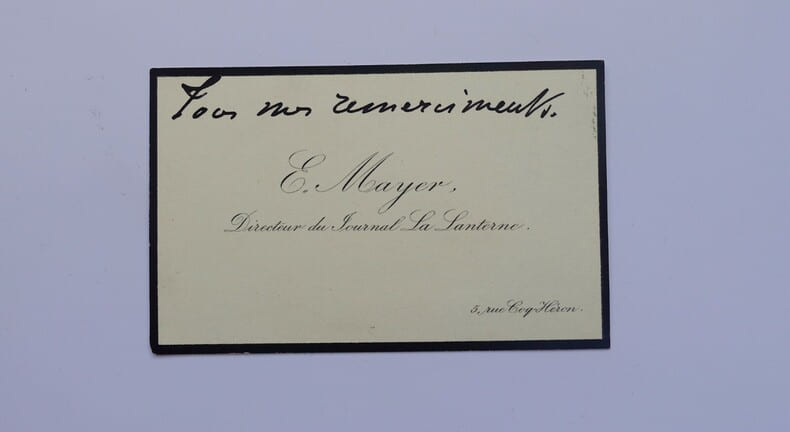 Tous mes remerciments.
E. Mayer,
Directeur du Journal La Lanterne.
5, rue Coq-Héron.